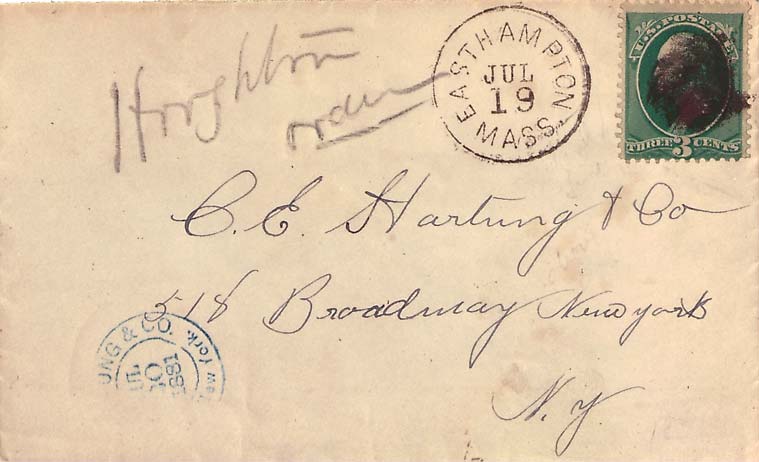 Houghton
order
EASTHAMPTON
JUL
19
MASS.
U.S. POSTAGE
THREE 3 CENTS
C. E. Hartung & Co
518 Broadway New york
N. y.
UNG & CO.
ew York.
1881